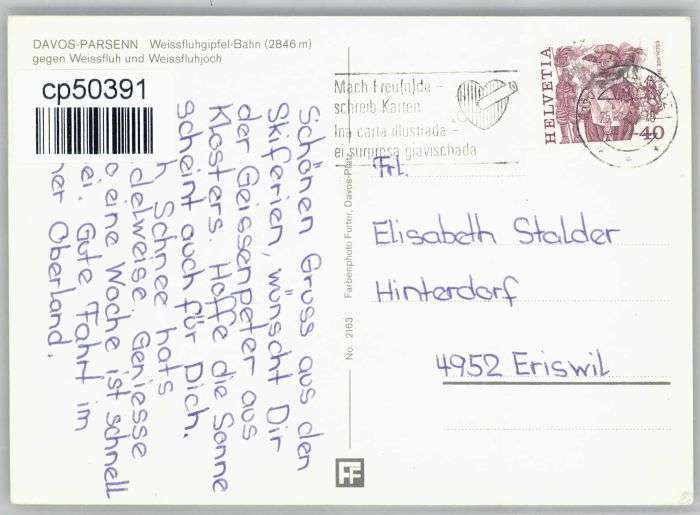 DAVOS-PARSENN Weissfluhgipfel-Bahn (2846 m)
gegen Weissfluh und Weissfluhjoch
cp50391
Schönen Gruss aus den
Skiferien, wünscht Dir
der Geissenpeter aus
Klosters. Hoffe die Sonne
scheint auch für Dich.
h Schnee hats
delweise. Geniesse
o eine Woche ist schnell
ei. Gute Fahrt im
ner Oberland.
No. 2163 Farbenphoto Furter, Davos-Platz
FF
Mach Freu(n)de -
schreib Karten
Ina carta illustrada -
ei surpresa giavischada
HELVETIA
40
Frl.
Elisabeth Stalder
Hinterdorf
4952 Eriswil